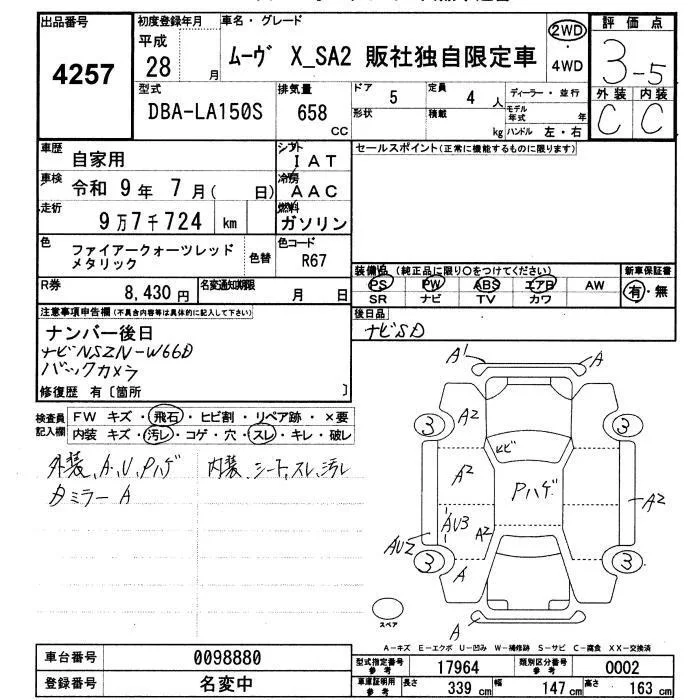 出品番号
4257
初度登録年月
平成
28 月
車名・グレード
ムーヴ X_SA2 販社独自限定車
2WD
・
4WD
評価点
3-5
外装 内装
C C
型式
DBA-LA150S
排気量
658
CC
ドア
5
定員
4 人
形状
積載
kg
ディーラー・並行
モデル年式 年
ハンドル 左・右
車歴
自家用
シフト
IAT
車検
令和 9年 7月( 日)
冷房
AAC
走行
9万7千724 km
燃料
ガソリン
色
ファイアークォーツレッド
メタリック
色替
色コード
R67
R券
8,430円
名変通知期限
月 日
セールスポイント(正常に機能するものに限ります)
装備品(純正品に限り○をつけてください)
PS PW ABS エアB AW
SR ナビ TV カワ
新車保証書
有・無
後日品
ナビSD
注意事項申告欄(不具合内容等は具体的に記入して下さい)
ナンバー後日
ナビNSZN-W66D
バックカメラ
修復歴 有〔箇所 〕
検査員
記入欄
FW キズ・飛石・ヒビ割・リペア跡・×要
内装 キズ・汚レ・コゲ・穴・スレ・キレ・破レ
外装、A、U、Pハゲ
左ミラーA
内装、シート、スレ、汚レ
A1 A
3 A2 3
ヒビ
A2 Pハゲ A2
AU3 A2
AU2
3 A 3
A
スペア
A-キズ E-エクボ U-凹み W-補修跡 S-サビ C-腐食 XX-交換済
車台番号
0098880
登録番号
名変中
型式指定番号
参考
17964
類別区分番号
参考
0002
車庫証明用
参考
長さ 339 cm 幅 147 cm 高さ 163 cm